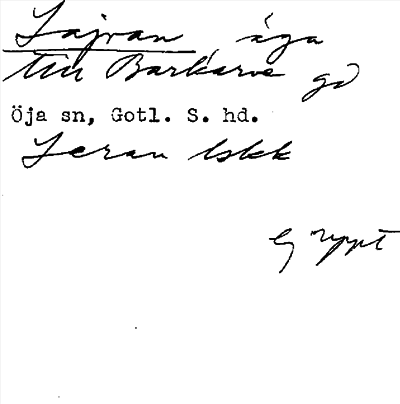 Lajvan, äga
till Barkarve gd
Öja sn, Gotl. S. hd.
Leran lskk
Ej uppt